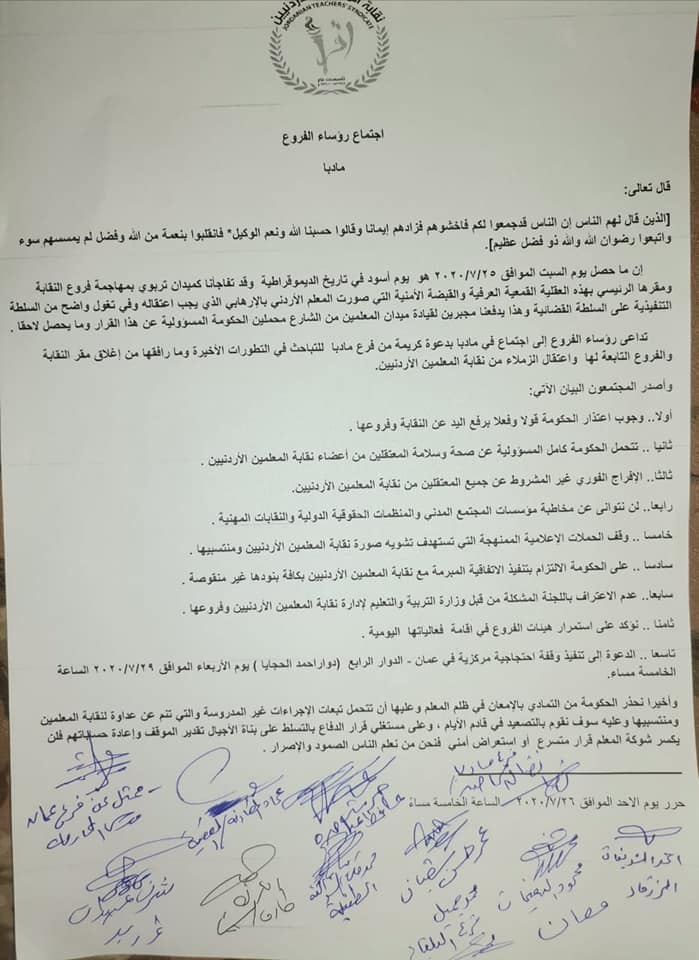 JORDANIAN TEACHERS' SYNDICATE
اقرأ
اجتماع رؤساء الفروع
مادبا
قال تعالى:
[الذين قال لهم الناس إن الناس قدجمعوا لكم فاخشوهم فزادهم إيمانا وقالوا حسبنا الله ونعم الوكيل* فانقلبوا بنعمة من الله وفضل لم يمسسهم سوء
واتبعوا رضوان الله والله ذو فضل عظيم].
إن ما حصل يوم السبت الموافق ٢٠٢٠/٧/٢٥ هو يوم أسود في تاريخ الديموقراطية وقد تفاجأنا كميدان تربوي بمهاجمة فروع النقابة
ومقرها الرئيسي بهذه العقلية القمعية العرفية والقبضة الأمنية التي صورت المعلم الأردني بالإرهابي الذي يجب اعتقاله وفي تغول واضح من السلطة
التنفيذية على السلطة القضائية وهذا يدفعنا مجبرين لقيادة ميدان المعلمين من الشارع محملين الحكومة المسؤولية عن هذا القرار وما يحصل لاحقا .
تداعى رؤساء الفروع إلى اجتماع في مادبا بدعوة كريمة من فرع مادبا للتباحث في التطورات الأخيرة وما رافقها من إغلاق مقر النقابة
والفروع التابعة لها واعتقال الزملاء من نقابة المعلمين الأردنيين.
وأصدر المجتمعون البيان الآتي:
أولا.. وجوب اعتذار الحكومة قولا وفعلا برفع اليد عن النقابة وفروعها .
ثانيا .. تتحمل الحكومة كامل المسؤولية عن صحة وسلامة المعتقلين من أعضاء نقابة المعلمين الأردنيين .
ثالثا.. الإفراج الفوري غير المشروط عن جميع المعتقلين من نقابة المعلمين الأردنيين.
رابعا.. لن نتوانى عن مخاطبة مؤسسات المجتمع المدني والمنظمات الحقوقية الدولية والنقابات المهنية .
خامسا .. وقف الحملات الإعلامية الممنهجة التي تستهدف تشويه صورة نقابة المعلمين الأردنيين ومنتسبيها .
سادسا .. على الحكومة الالتزام بتنفيذ الاتفاقية المبرمة مع نقابة المعلمين الأردنيين بكافة بنودها غير منقوصة .
سابعا.. عدم الاعتراف باللجنة المشكلة من قبل وزارة التربية والتعليم لإدارة نقابة المعلمين الأردنيين وفروعها .
ثامنا .. نؤكد على استمرار هيئات الفروع في اقامة فعالياتها اليومية .
تاسعا .. الدعوة إلى تنفيذ وقفة احتجاجية مركزية في عمان - الدوار الرابع (دواراحمد الحجايا ) يوم الأربعاء الموافق ٢٠٢٠/٧/٢٩ الساعة
الخامسة مساء.
وأخيرا نحذر الحكومة من التمادي بالإمعان في ظلم المعلم وعليها أن تتحمل تبعات الإجراءات غير المدروسة والتي تنم عن عداوة لنقابة المعلمين
ومنتسبيها وعليه سوف نقوم بالتصعيد في قادم الأيام ، وعلى مستغلي قرار الدفاع بالتسلط على بناة الأجيال تقدير الموقف وإعادة حساباتهم فلن
يكسر شوكة المعلم قرار متسرع أو استعراض أمني فنحن من نعلم الناس الصمود والإصرار .
حرر يوم الاحد الموافق ٢٠٢٠/٧/٢٦ الساعة الخامسة مساءً
ممثل عن فرع عمان
معان
الطفيلة
اربد